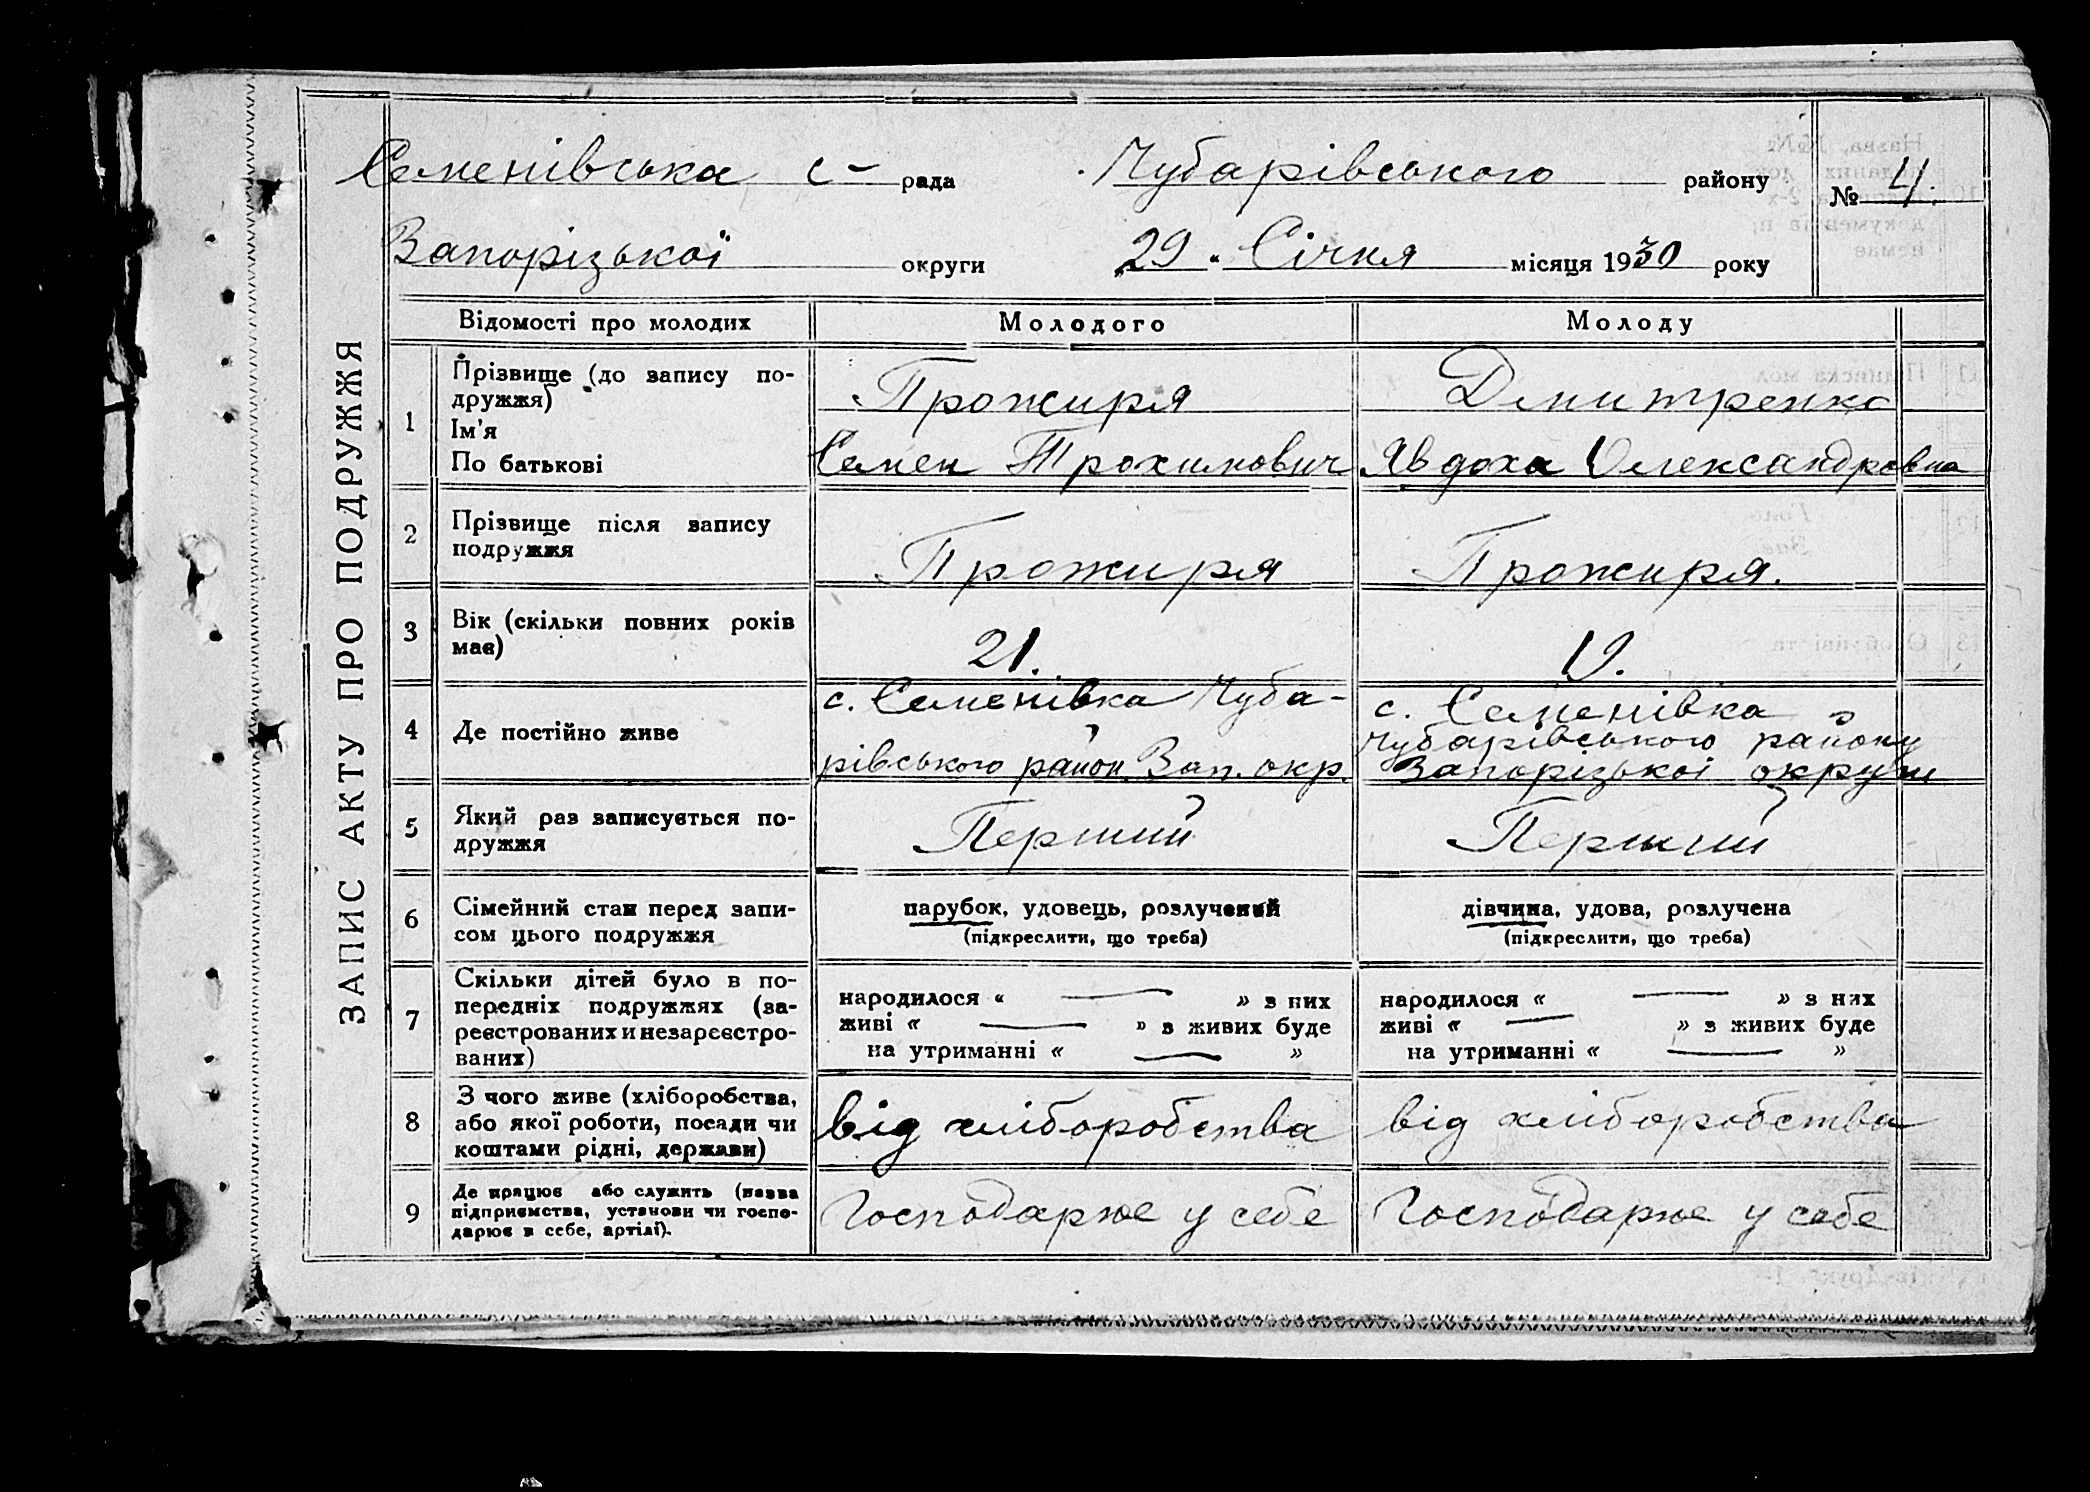 Семенівська с- рада Чубарівського району № 4.
Запорізької округи 29 " Січня місяця 1930 року
ЗАПИС АКТУ ПРО ПОДРУЖЖЯ
Відомості про молодих Молодого Молоду
1 Прізвище (до запису по-
дружжя) Прожиря Дмитренко
Ім'я
По батькові Семен Трохимович Явдоха Олександровна
2 Прізвище після запису
подружжя Прожиря Прожиря.
3 Вік (скільки повних років
має) 21. 19.
4 Де постійно живе
с. Семенівка Чуба-
рівського район. Зап. окр.
с. Семенівка
Чубарівського району
Запорізькоі округи
5 Який раз записується по-
дружжя Перший Перший
6 Сімейний стан перед запи-
сом цього подружжя
парубок, удовець, розлучений
(підкреслити, що треба)
дівчина, удова, розлучена
(підкреслити, що треба)
7 Скільки дітей було в по-
передніх подружжях (за-
реєстрованих и незареєстро-
ваних)
народилося « — » з них
живі « — » з живих буде
на утриманні « — »
народилося « — » з них
живі « — » з живих буде
на утриманні « — »
8 З чого живе (хліборобства,
або якої роботи, посади чи
коштами рідні, держави)
від хліборобства від хліборобства
9 Де працює або служить (назва
підприємства, установи чи госпо-
дарює в себе, артілі).
Господарює у себе Господарює у себе